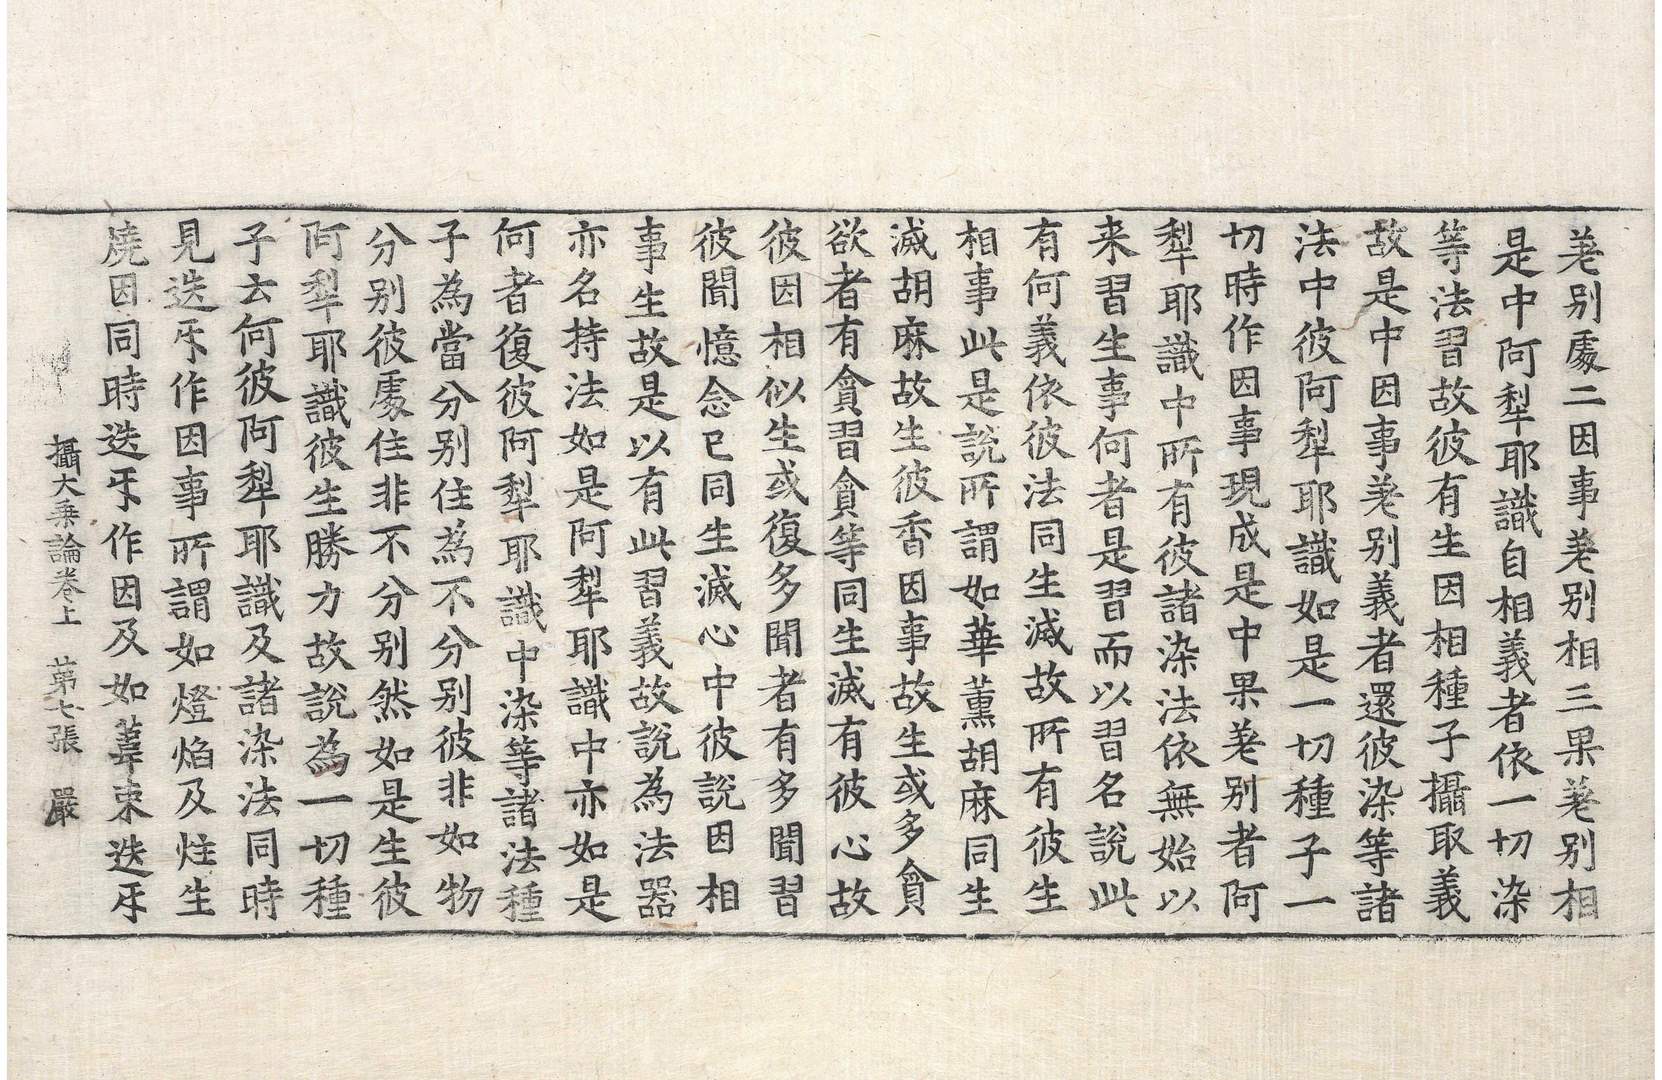 差別處二因事差別相三果差別相
是中阿犁耶識自相義者依一切染
等法習故彼有生因相種子攝取義
故是中因事差別義者還彼染等諸
法中彼阿犁耶識如是一切種子一
切時作因事現成是中果差別者阿
犁耶識中所有彼諸染法依無始以
来習生事何者是習而以習名說此
有何義依彼法同生滅故所有彼生
相事此是說所謂如華薫胡麻同生
滅胡麻故生彼香因事故生或多貪
欲者有貪習貪等同生滅有彼心故
彼因相似生或復多聞者有多聞習
彼聞憶念已同生滅心中彼說因相
事生故是以有此習義故說為法器
亦名持法如是阿犁耶識中亦如是
何者復彼阿犁耶識中染等諸法種
子為當分別住為不分別彼非如物
分別彼處住非不分別然如是生彼
阿犁耶識彼生勝力故說為一切種
子云何彼阿犁耶識及諸染法同時
見迭㸦作因事所謂如燈焰及炷生
燒因同時迭㸦作因及如葦束迭㸦
攝大乗論卷上　第七張　嚴